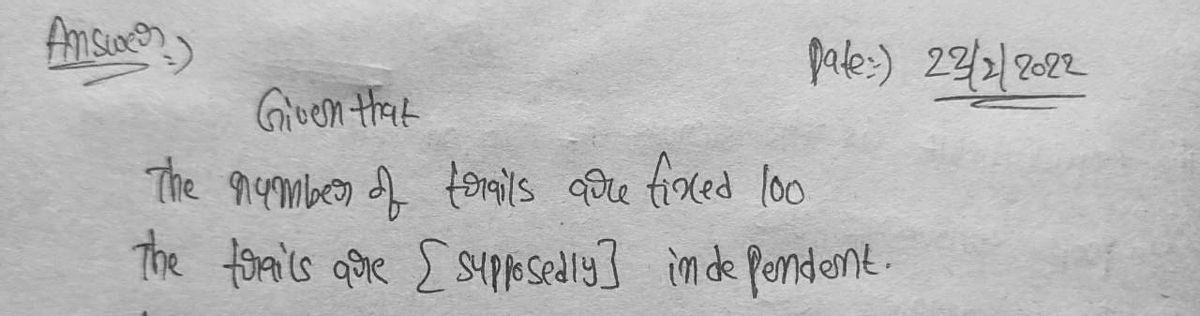 Answer:-) Date:-) 22/2/2022
Given that
The number of trails are fixed 100
The trails are [supposedly] independent.